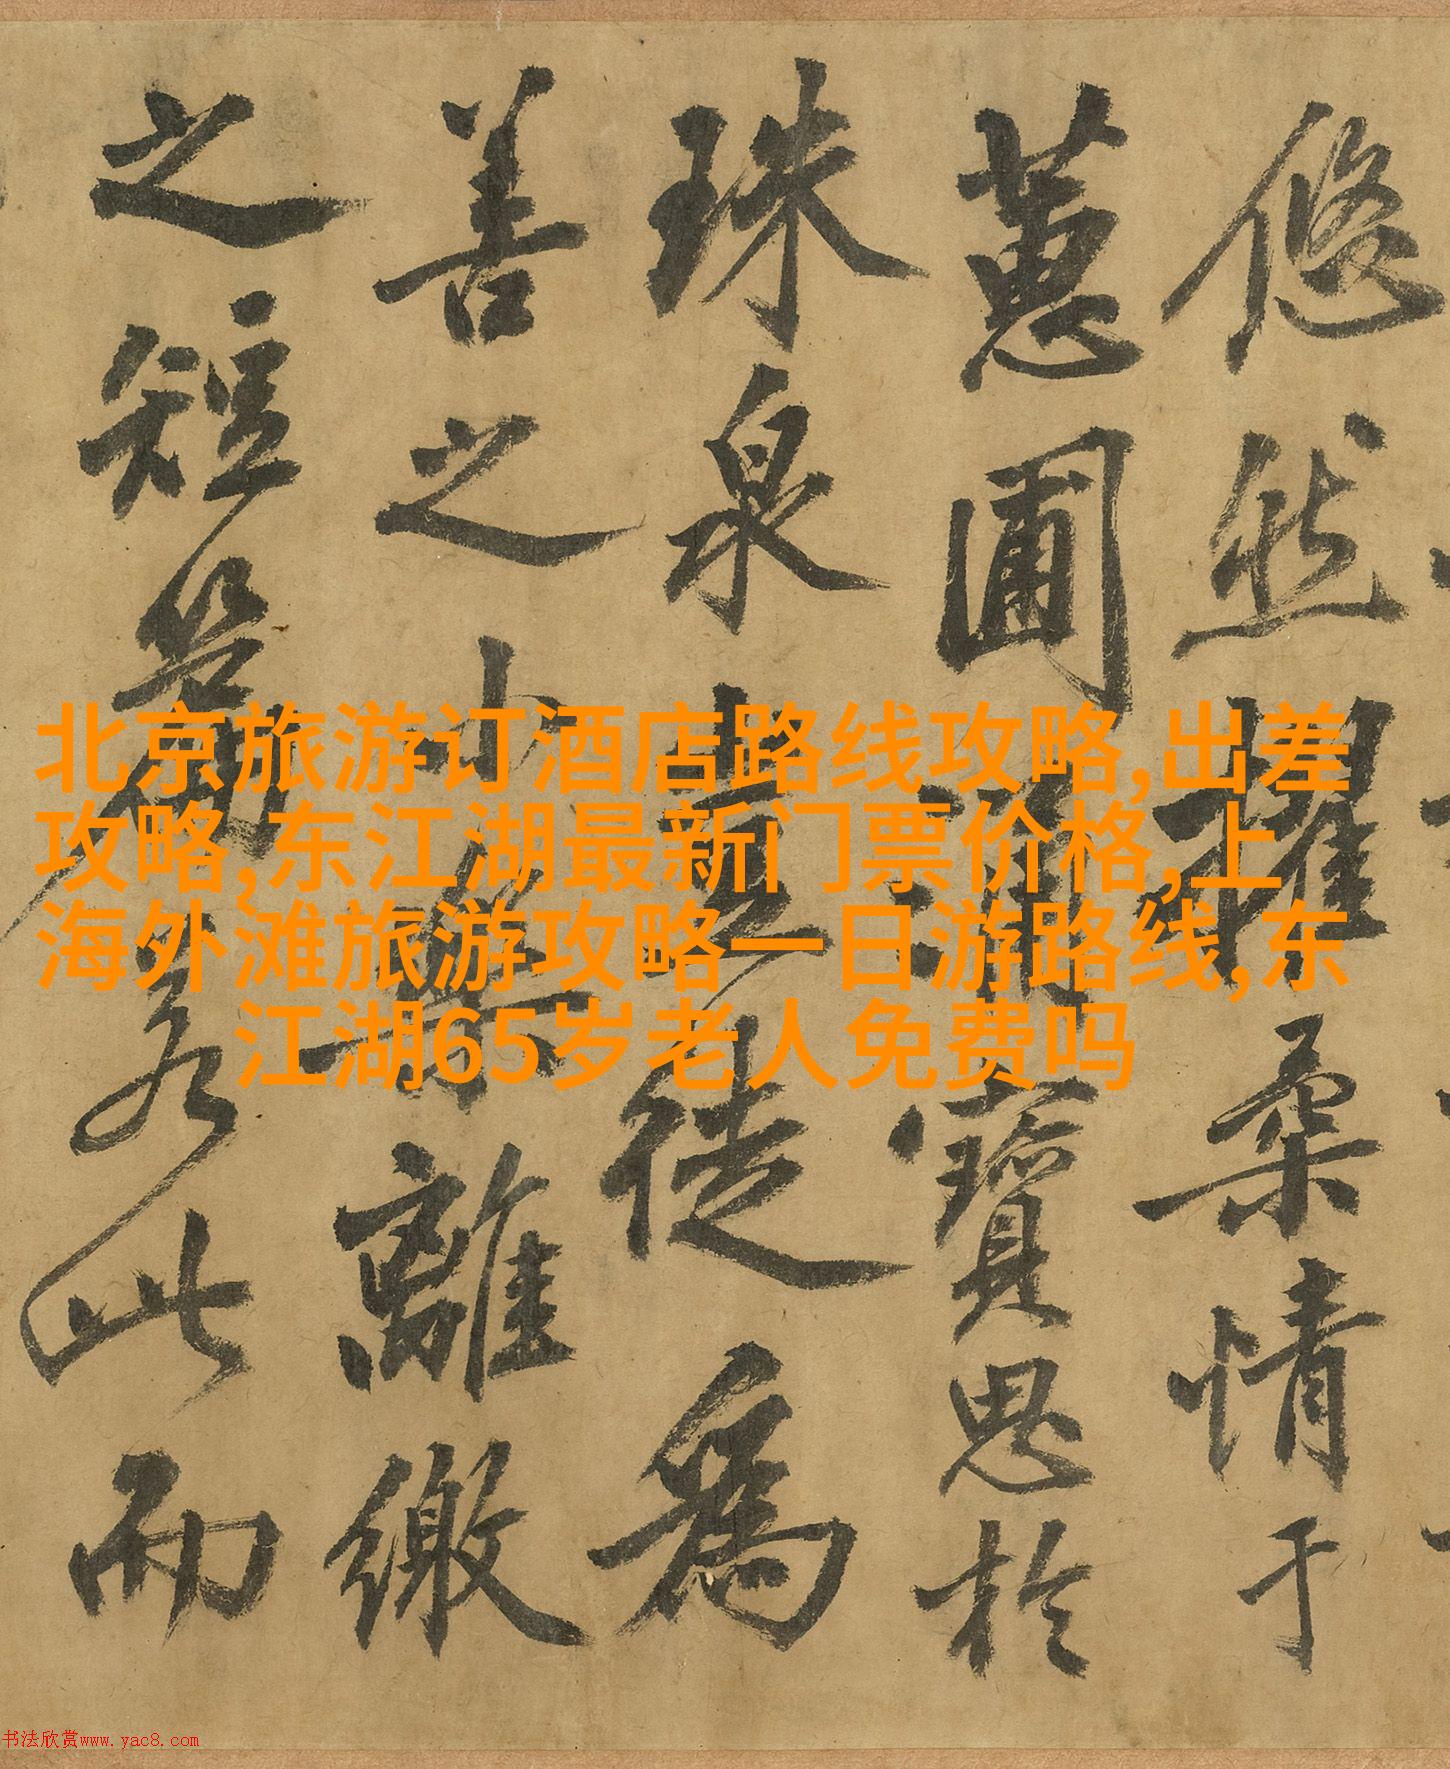 悠然擢柔情于
蕙圃寶思於
珠泉豈徒為
善之小樂離繳
之短若此而
北京旅游订酒店路线攻略,出差
攻略,东江湖最新门票价格,上
海外滩旅游攻略一日游路线,东
江湖65岁老人免费吗
书法欣赏www.yac8.com